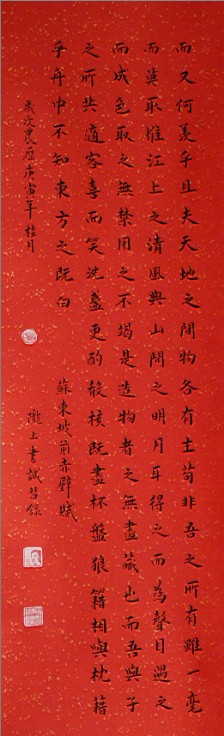 而又何羡乎且夫天地之間物各有主苟非吾之所有雖一毫
而莫取惟江上之清風與山間之明月耳得之而為聲目遇之
而成色取之無禁用之不竭是造物者之無盡藏也而吾與子
之所共適客喜而笑洗盞更酌殽核既盡杯盤狼籍相與枕藉
乎舟中不知東方之既白 蘇東坡前赤壁賦
歲次農歷庚寅年桂月
隴上